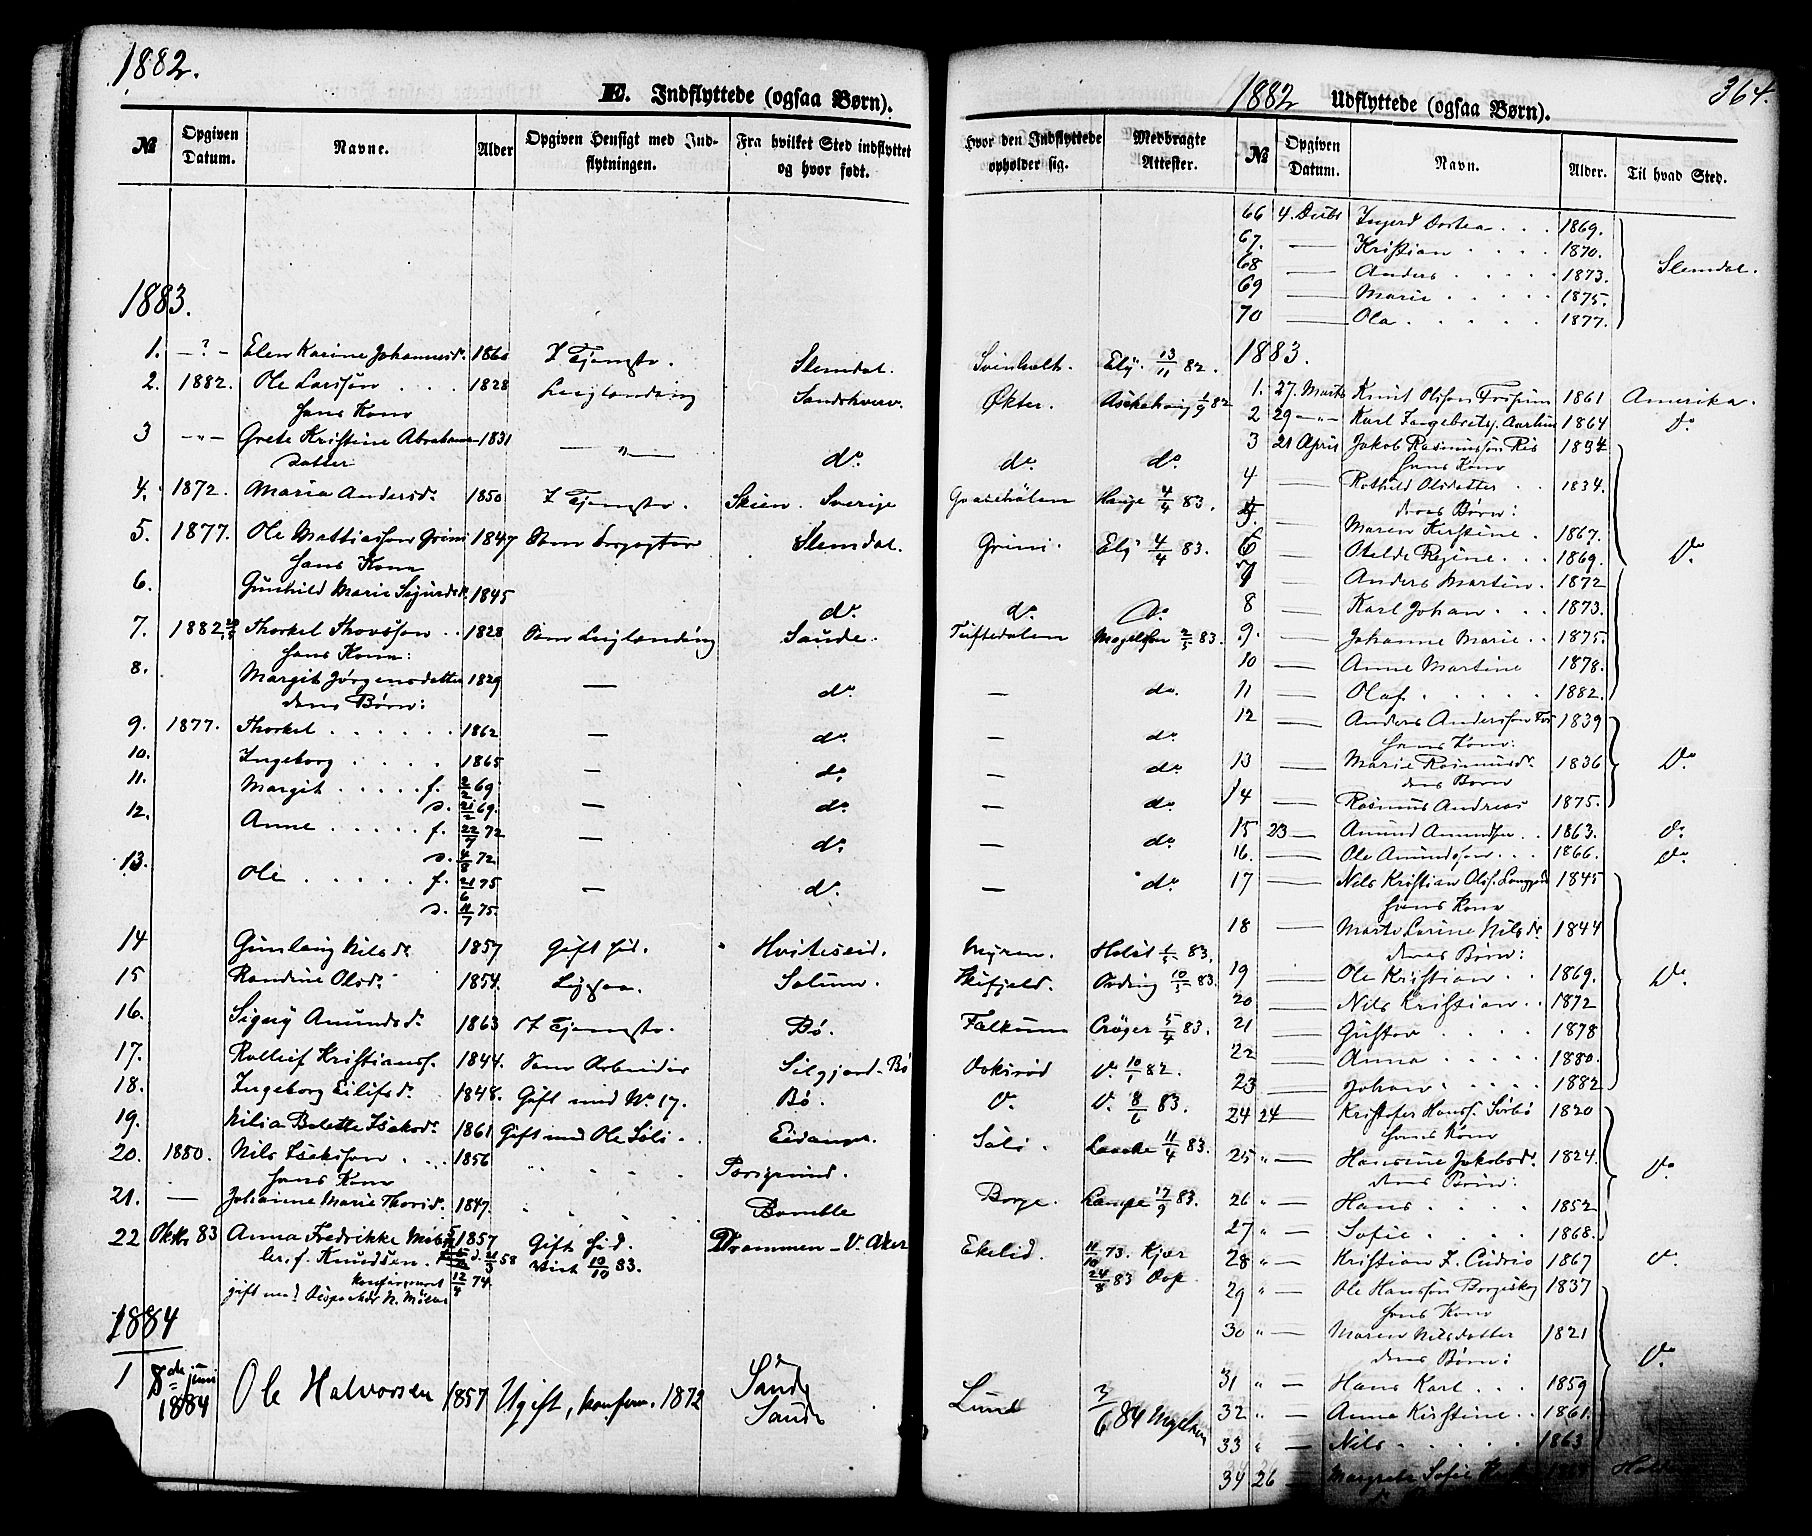 1882.
E. Indflyttede (ogsaa Børn).
№ Opgiven Datum. Navne. Alder Opgiven Hensigt med Indflytningen. Fra hvilket Sted indflyttet og hvor født.
Hvor den Indflyttede opholder sig. Medbragte Attester.
1883.
1. — ? — Elen Karine Johannesd. 1860 I Tjeneste. Slemdal. Svinholt. 13/11 82.
2. 1882. Ole Larssøn . . . 1828 Sandshverv. Økter. 1/9 82
hans Kone
3 — " — Grete Kristine Abrahams- 1831 — " — do. do. do.
datter
4. 1872. Maria Andersd. 1850 I Tjeneste. Skien. Sverige Hauge 4/4 83.
5. 1877. Ole Mattiassøn Grini 1847 Slemdal. Grini. 4/4 83.
hans Kone
6. Gunhild Marie Sigurdsd. 1845 do. do. Do.
7. 1882 Thorkel Thovssøn . . 1828 Saude. Tuftedalen 2/5 83.
hans Kone:
8. Margit Jørgensdatter 1829 — do. — do.
deres Børn:
9. 1877. Thorkel . . . . . . 1862 — do. — do.
10. Ingeborg . . . . 1865 — do. — do.
11. Margit . . . . . f. 2/2 69
d. 21/2 69. — do. — do.
12. Anne . . . . . f. 22/7 72
d. 4/8 72 — do. — do.
13. Ole . . . . . f. 21/6 75
d. 11/7 75. — do. — do.
14 Gunlaug Nilsd. 1857 Gift hid. Hviteseid. Myren. 83.
15 Randine Olsd. 1854. Solum. 10/5 83.
16. Signy Amundsd. 1863 I Tjeneste. Bø. Falkum Crøger 5/4 83.
17. Rolleif Kristianss. 1844. Som Arbeider Siljord. Bø D. 10/1 82.
18. Ingeborg Eilifsd. 1848. Gift med No. 17. Bø. D. D. 8/6 83.
19. Nilia Bolette Isaksd. 1861 Gift med Ole Søli . Eidanger. Søli . 11/4 83.
20. 1880. Nils Isakssøn . . . 1856 Porsgrund.
hans Kone
21. — Johanne Marie Thorisd. 1847. Bamble Borge. Lampe 17/9 83.
22 Oktbr 83 Anna Fredrikke 1857 Gift hid. Drammen – V. Aker Ekelid. 11/10 73. Kjær
f. Knudsen . 58 Viet 10/10 83. 24/8 83
konfirmeret 12/4 74.
gift med
1884
1 8de juni 1884 Ole Halvorsen 1857 Ugift, konfirm. 1872 Saude Saude Lund 3/6 84
1882
Udflyttede (ogsaa Børn).
364.
№ Opgiven Datum. Navn. Alder. Til hvad Sted.
66 4. Decbr Ingerd Dortea . . . 1869.
67. — Kristian . . . . 1870.
68 — Anders . . . . . 1873. Slemdal.
69 — Marie . . . . . 1875.
70 — Ola . . . . . 1877.
1883.
1. 27. Marts Knut Olsson 1861 Amerika.
2 29 — " — Karl Ingebretss. 1864 Do
3 21 April Jakob Rasmussøn Ris 1834.
hans Kone
4 — Olsdatter . . 1834.
deres Børn:
5. — Maren Kirstine . 1867.
6 — Regine . . . 1869. Do.
7 — Anders Martin . 1872
8 — Karl Johan . . . 1873.
9. — Johanne Marie . . 1875.
10 — Anne Martine 1878.
11 — Olaf . . . . . . 1882.
12 — Anders Anderssøn 1839
hans Kone:
13 — Marie Rasmusd. 1836 Do.
deres Børn
14 — Rasmus Andreas 1875.
15 23 — Amund Amundsøn . . 1863. do.
16. — Ole Amundssøn . . . 1866. do.
17 — Nils Kristian Olss. 1845
hans Kone
18 — Larine Nilsd. 1844
deres Børn:
19 — Ole Kristian . . 1869. Do.
20 — Nils Kristian . . 1872
21 — Gustav . . . . 1878
22 — Anna . . . . . 1880.
23 — Johan . . . . . 1882
24 24 — Kristofer Hanss. 1820
hans Kone
25 " — Hansine Jakobsd. 1824. Do.
deres Børn:
26 " — Hans . . . . . 1852
27 " — Sofie . . . . . 1868.
28 " — Kristian 1867 D.
29 " — Ole Hanssøn 1837
hans Kone
30 " — Maren Nilsdatter 1821
deres Børn: Do.
31 " — Hans Karl . . . 1859
32 " — Anna Kirstine . . 1861.
33 " — Nils . . . . . . 1863
34 26 — Sofie